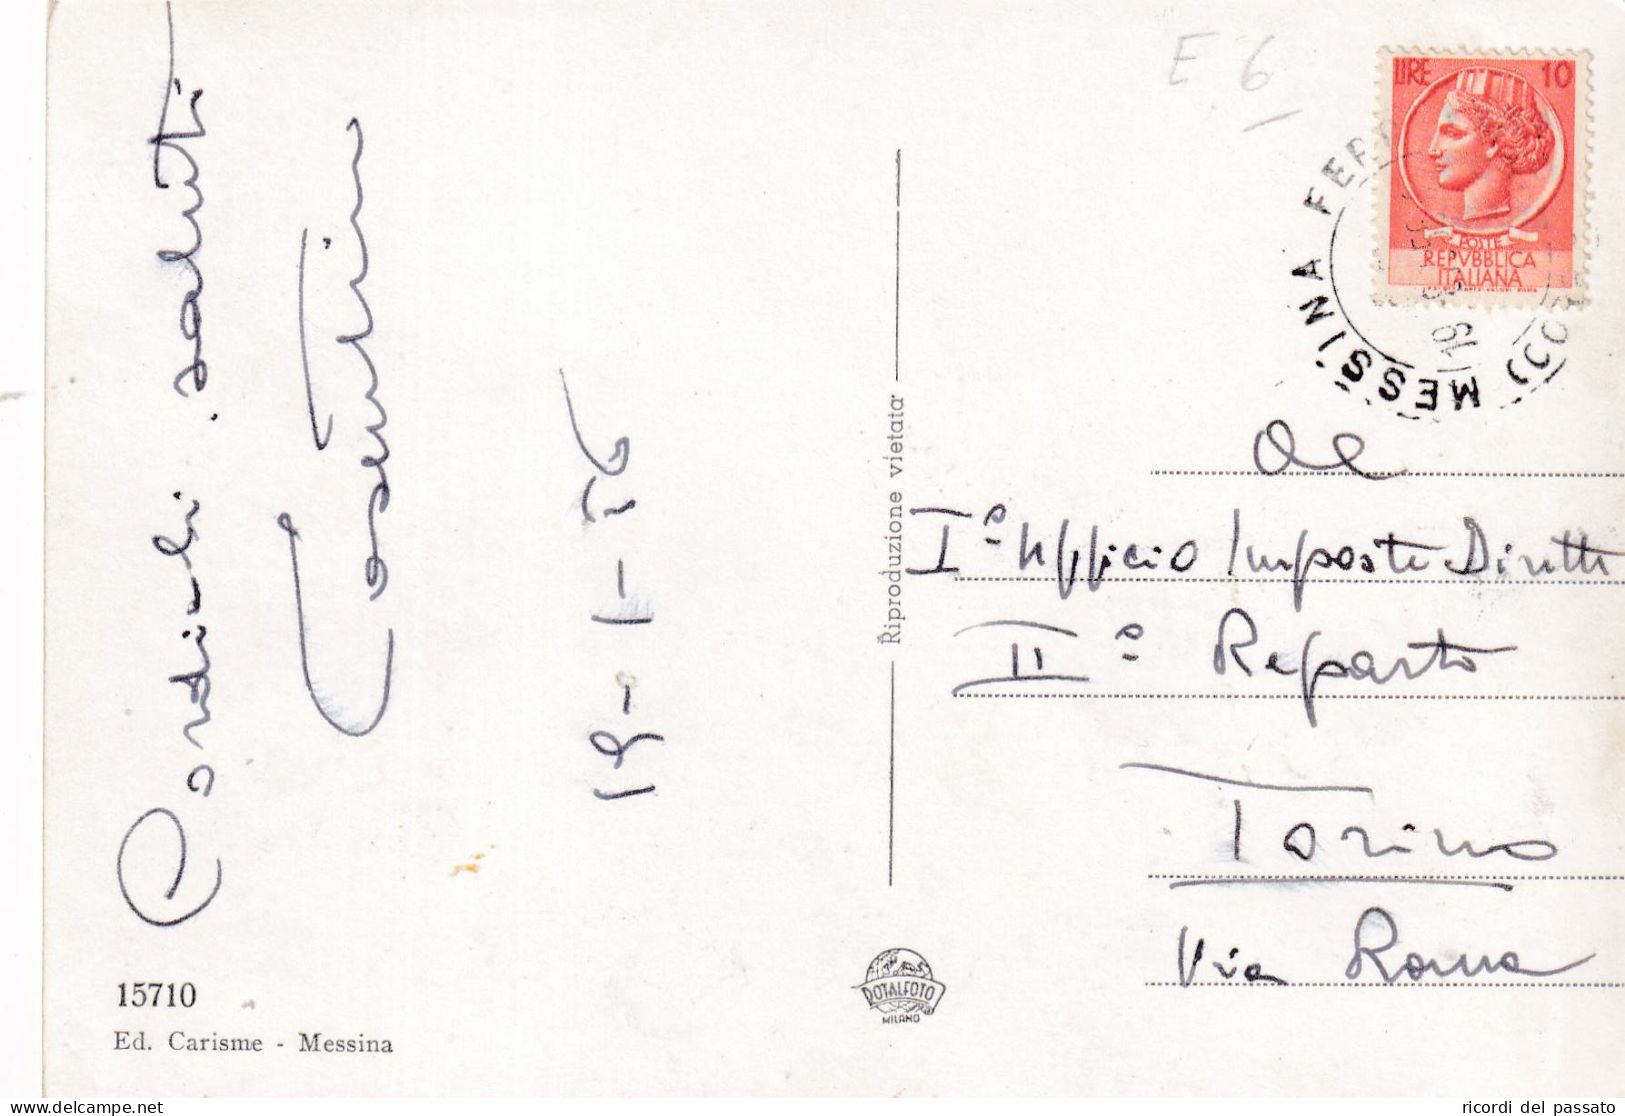 Cordiali saluti
19-1-56
15710
Ed. Carisme - Messina
Riproduzione vietata
ROTALFOTO
MILANO
E 6
LIRE 10
POSTE
REPVBBLICA
ITALIANA
MESSINA FERR
Al
I° Ufficio Imposte Dirette
II° Reparto
Torino
Via Roma
delcampe.net
ricordi del passato